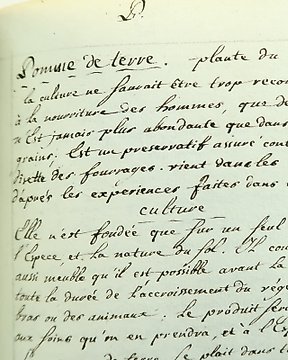 P.
Pomme de terre. plante du
la culture ne saurait être trop recom
à la nourriture des hommes, que de
n'Est jamais plus abondante que dans
grains; Est un preservatif assuré cont
disette des fourrages. vient dans les
d'après les experiences faites dans
culture
Elle n'est fondée que sur un seul
l'Espece, et la nature du sol. Il cou
aussi meuble qu'il est possible avant la
toute la durée de l'accroisement du vege
bras ou des animaux. le produit sera
aux soins qu'on en prendra, et à l'Esp
terre se plait dans t